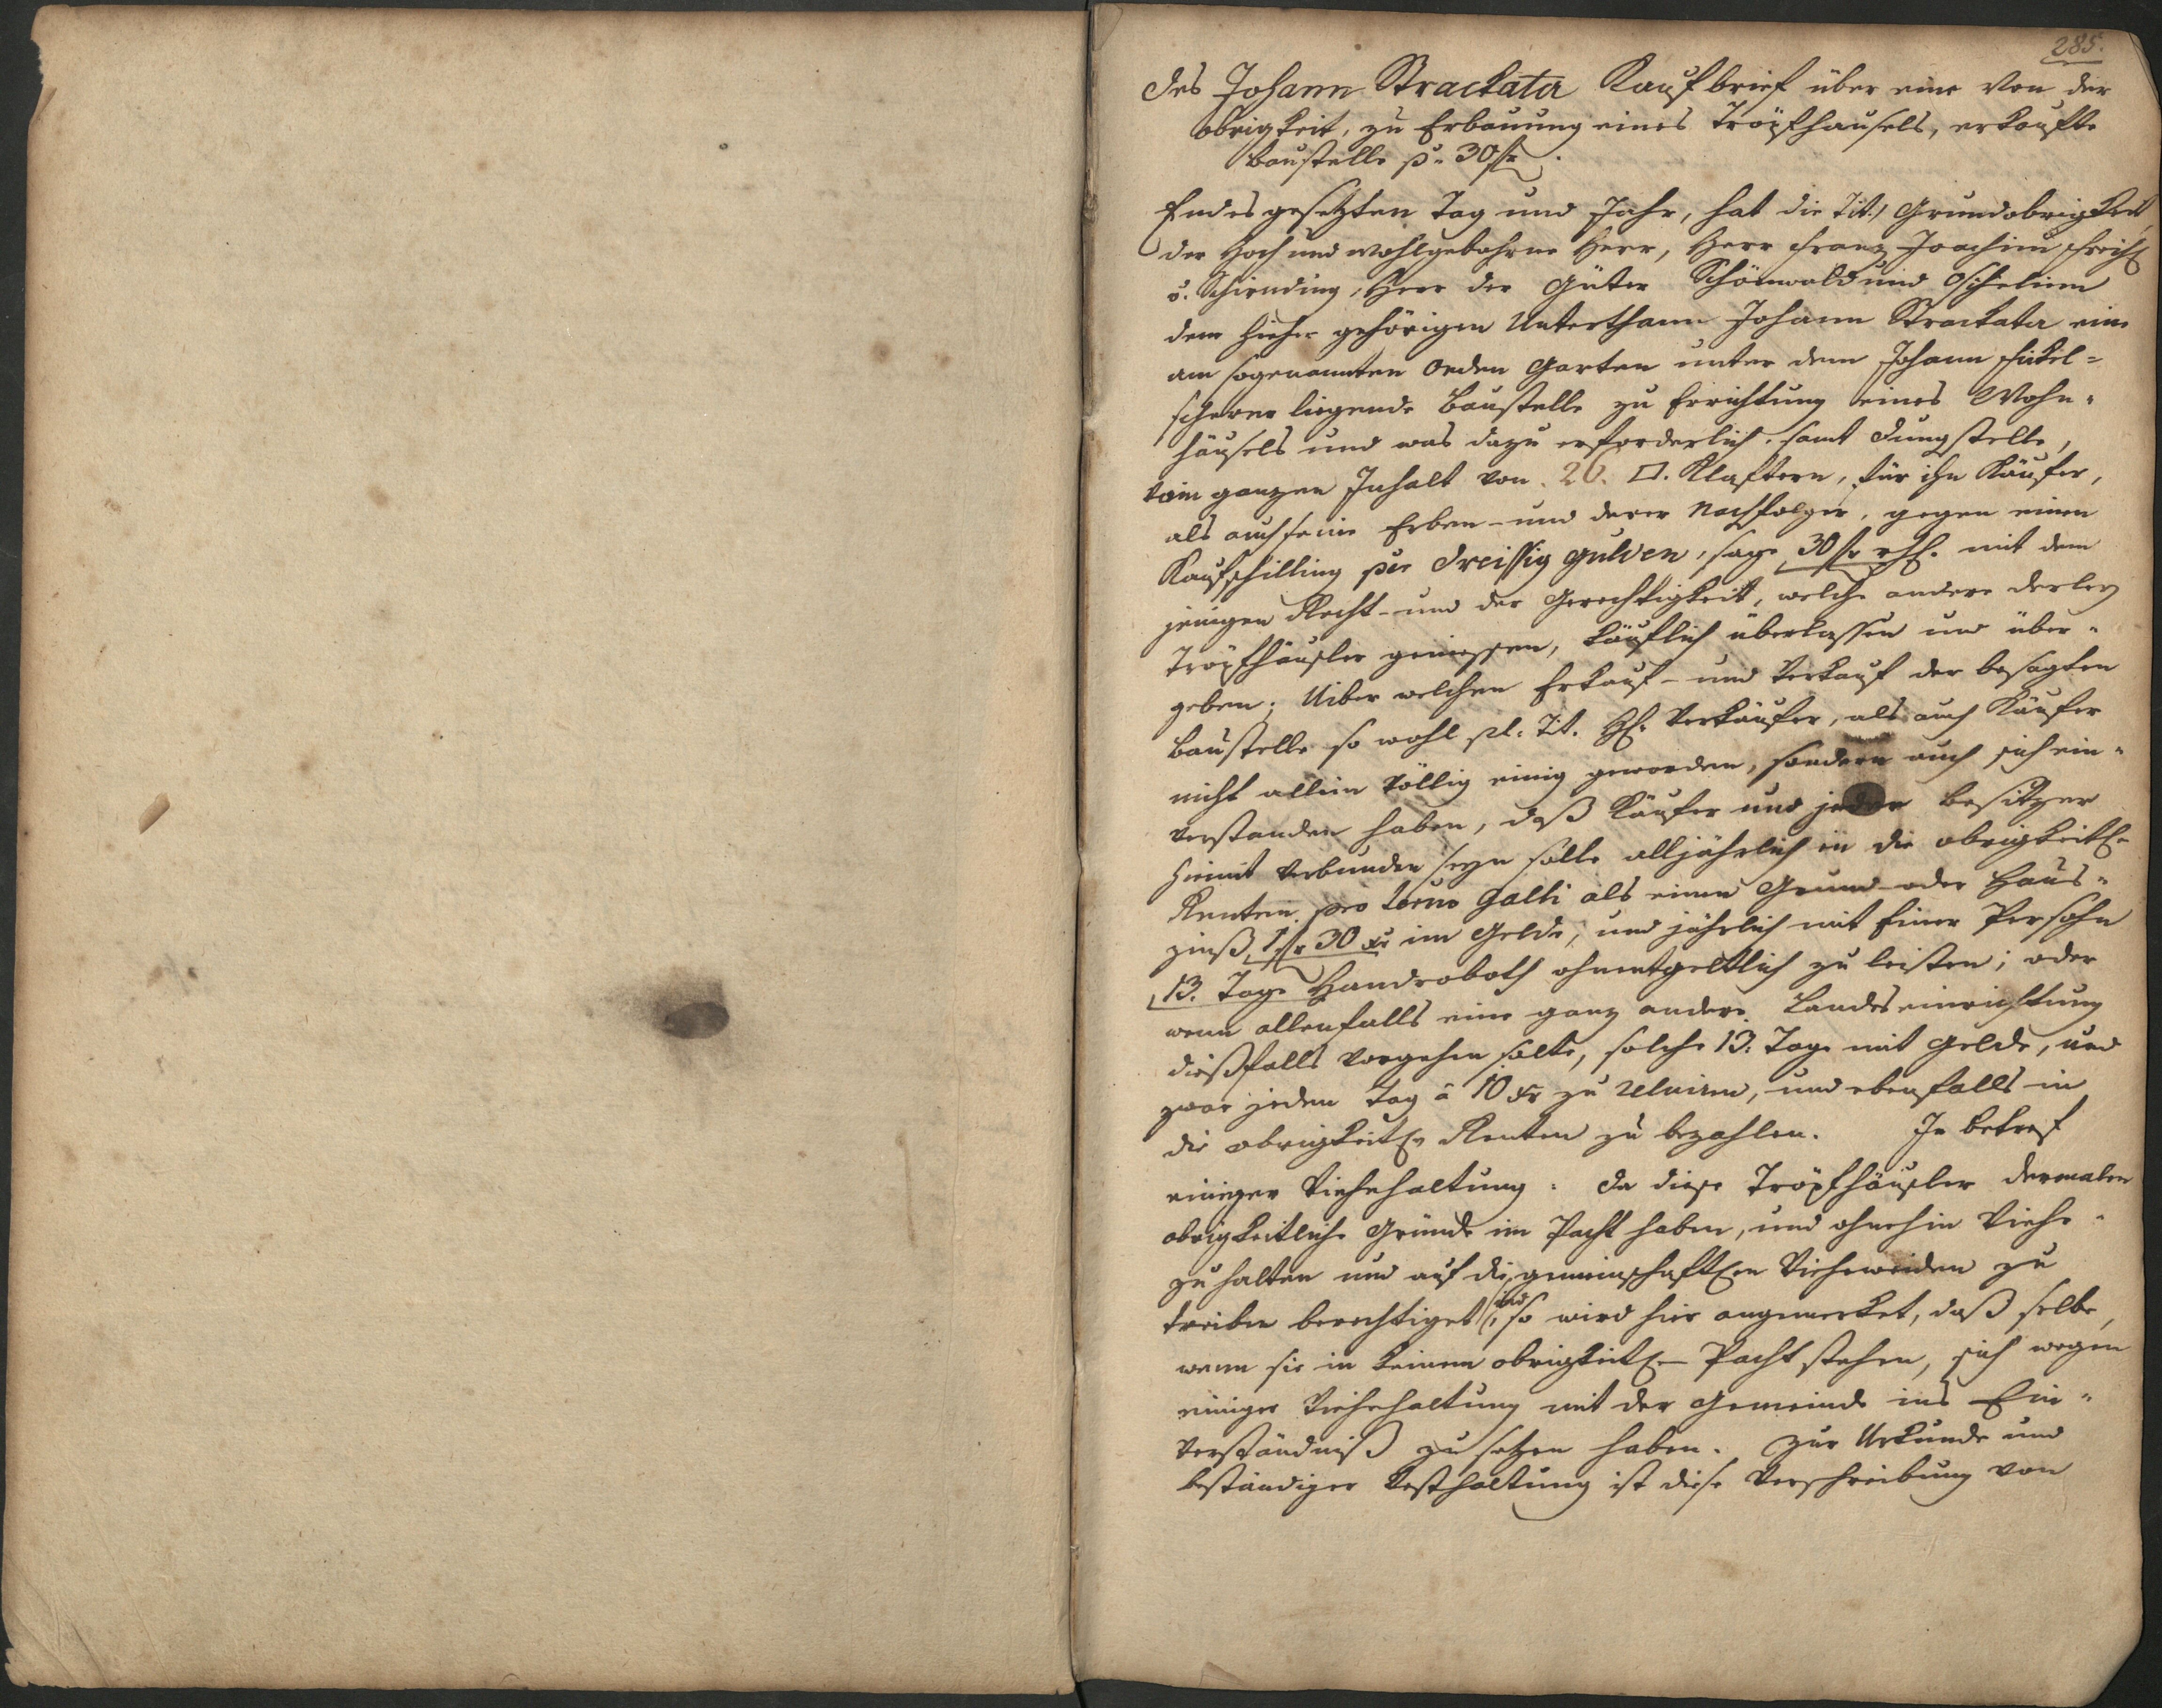 285.
Des Johann Strackata Kaufbrief über eine von der
Obrigkeit, zu Erbauung eines Tröpfhausels, erkaufte
Baustelle pr 30 fl.
Endes gesetzten Tag und Jahr, hat die Tit.) Grundobrigkeit
der Hoch und Wohlgebohrne Herr, Herr Franz Joachim Freih
v. Schirnding, Herr der Güter Schönwald und Oschelin
dem hieher gehörigen Unterthann Johann Strackata eine
am sogenannten Oeden Garten unter dem Johann
scherer liegende Baustelle zu Errichtung eines Wohn-
häusels und was dazu erforderlich, samt Dungstelle,
vom ganzen Inhalt von 20. □. Klaftern, für ihn Käufer,
als auch seine Erben- und derer Nachfolger, gegen einen
Kaufschilling per Dreissig Gulden, sage 30 fl rhl. mit dem
jenigen Recht- und der Gerechtigkeit, welche andere derley
Tröpfhäusler geniessen, käuflich überlassen und über-
geben; Uiber welchen Erkauf- und Verkauf der besagten
Baustelle so wohl pl. Tit. H. Verkäufer, als auch Käufer
nicht allein völlig einig geworden, sondern auch sich ein-
verstanden haben, daß Käufer und jeder Besitzer
hiemit verbunden seyn solle alljährlich in die obrigkeitl.
Renten pro Termo Galli als einen Grund- oder Haus-
zinß, 1 fl 30 xr im Gelde, und jährlich mit Einer Persohn
13. Tage Handroboth ohnentgeltlich zu leisten; oder
wenn allenfalls eine ganz andere Landeseinrichtung
dießfalls vorgehen solte, solche 13. Tage mit Gelde, und
zwar jeden Tag à 10 xr zu reluiren, und ebenfalls in
die obrigkeitl. Renten zu bezahlen. In betref
einiger Viehehaltung: da diese Tröpfhäusler dermalen
obrigkeitliche Gründe im Pacht haben, und ohnehin Viehe-
zu halten und auf die gemeinschaftlen Viehweiden zu
treiben berechtiget sind, so wird hier angemerket, daß selbe,
wenn sie in keinem obrigkeitl. Pacht stehen, sich wegen
einiger Viehehaltung mit der Gemeinde ins Ein-
verständniß zu setzen haben. Zur Urkunde und
beständiger Vesthaltung ist diese Verschreibung von